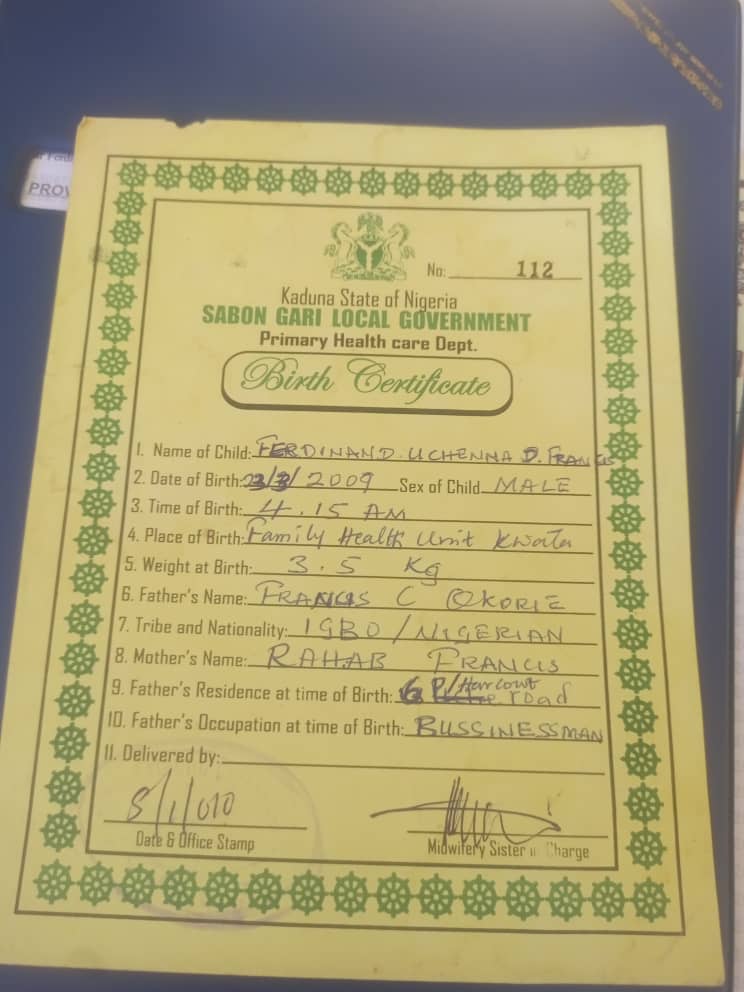 PROV
No: 112
Kaduna State of Nigeria
SABON GARI LOCAL GOVERNMENT
Primary Health care Dept.
Birth Certificate
1. Name of Child: FERDINAND. UCHENNA D. FRANCIS
2. Date of Birth: /2009 Sex of Child MALE
3. Time of Birth: 4.15 AM
4. Place of Birth: Family Health Unit Kwata
5. Weight at Birth: 3.5 Kg
6. Father's Name: FRANCIS C OKORIE
7. Tribe and Nationality: IGBO/NIGERIAN
8. Mother's Name: RAHAB FRANCIS
9. Father's Residence at time of Birth: 6 P/Harcourt road
10. Father's Occupation at time of Birth: BUSSINESSMAN
11. Delivered by:
8/1/010
Date & Office Stamp
Midwifery Sister in Charge